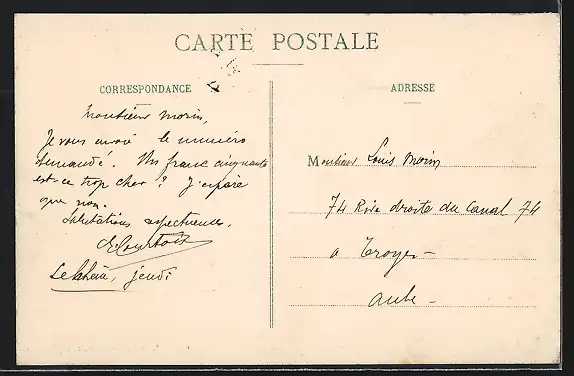 CARTE POSTALE
CORRESPONDANCE
Monsieur Morin,
Je vous envoie le numéro
demandé. Un franc cinquante
est-ce trop cher ? J'espère
que non.
Salutations respectueuses.
E. Courtois
jeudi
ADRESSE
Monsieur Louis Morin
74 Rive droite du Canal 74
a Troyes
Aube